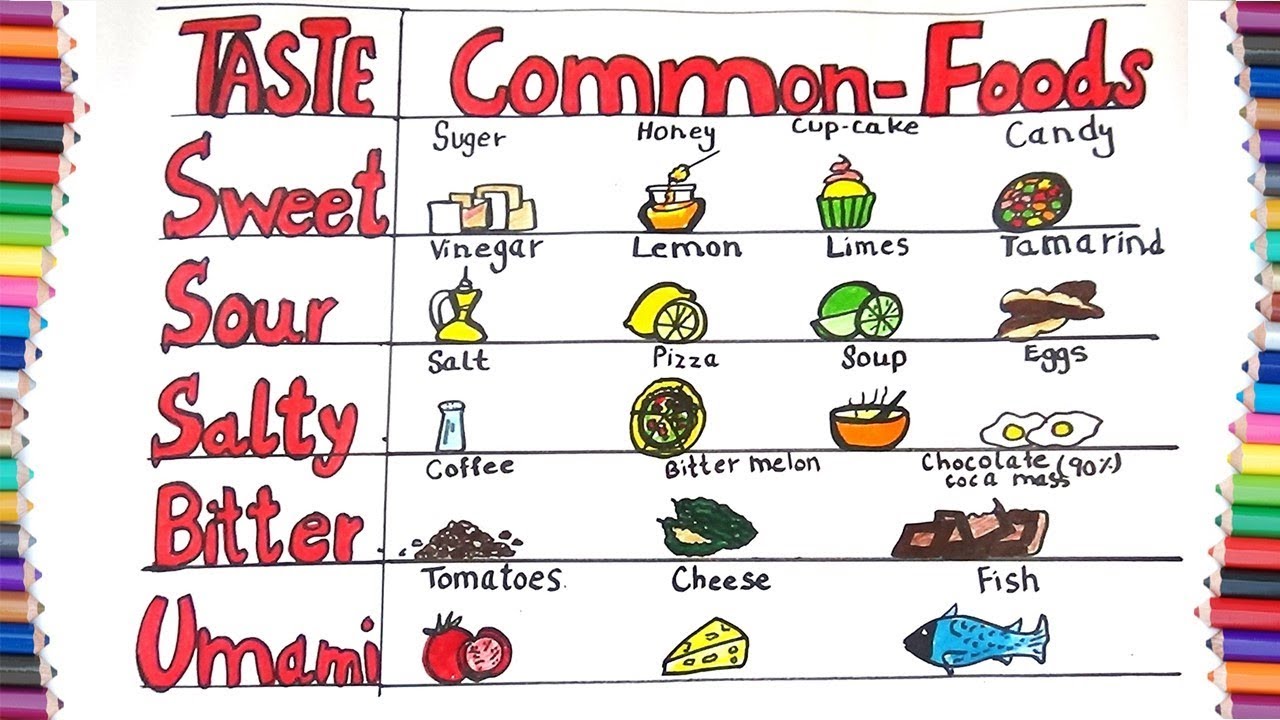 TASTE Common-Foods
Suger Honey Cup-cake Candy
Sweet
Vinegar Lemon Limes Tamarind
Sour
Salt Pizza Soup Eggs
Salty
Coffee Bitter melon Chocolate (90%)
coca mass
Bitter
Tomatoes. Cheese Fish
Umami